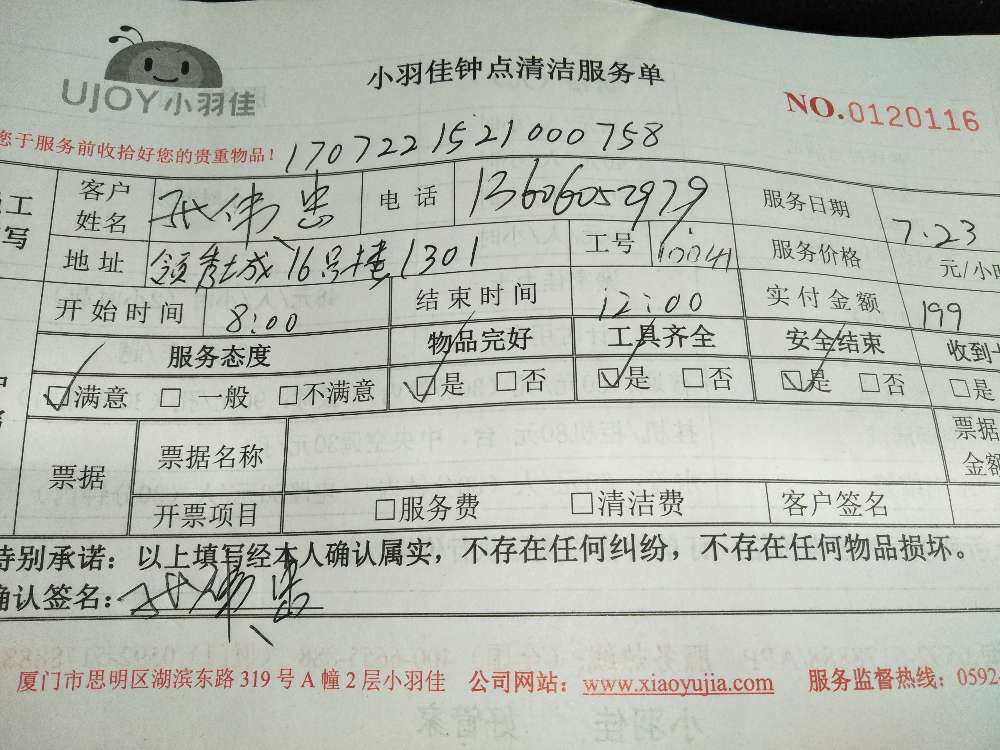 UJOY小羽佳
小羽佳钟点清洁服务单
NO.0120116
您于服务前收拾好您的贵重物品！ 1707221521000758
工 客户姓名 张伟忠 电话 13606052979 服务日期 7.23
写 地址 领秀城16号楼1301 工号 10041 服务价格 元/小时
开始时间 8:00 结束时间 12:00 实付金额 199
服务态度 物品完好 工具齐全 安全结束 收到
☑满意 □一般 □不满意 ☑是 □否 ☑是 □否 ☑是 □否 □是
票据 票据名称 票据金额
开票项目 □服务费 □清洁费 客户签名
特别承诺：以上填写经本人确认属实，不存在任何纠纷，不存在任何物品损坏。
确认签名：张伟忠
厦门市思明区湖滨东路319号A幢2层小羽佳 公司网站：www.xiaoyujia.com 服务监督热线：0592-